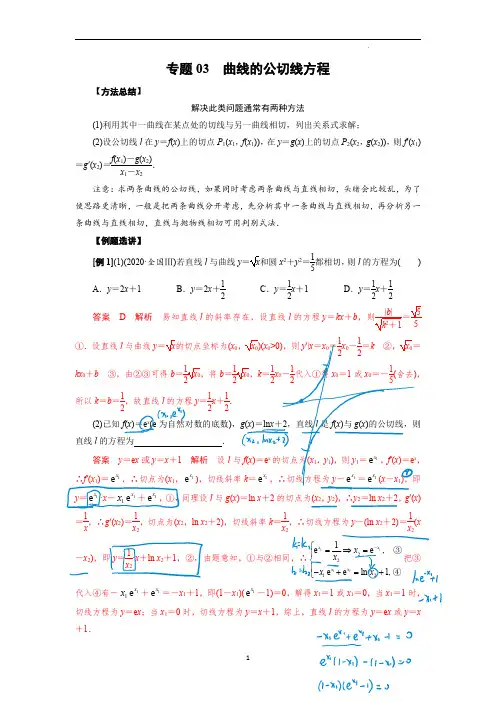 专题 03 曲线的公切线方程
【方法总结】
解决此类问题通常有两种方法
(1)利用其中一曲线在某点处的切线与另一曲线相切，列出关系式求解；
(2)设公切线 l 在 y＝f(x)上的切点 P₁(x₁，f(x₁))，在 y＝g(x)上的切点 P₂(x₂，g(x₂))，则 f′(x₁)
＝g′(x₂)＝(f(x₁)－g(x₂))/(x₁－x₂)．
注意：求两条曲线的公切线，如果同时考虑两条曲线与直线相切，头绪会比较乱，为了
使思路更清晰，一般是把两条曲线分开考虑，先分析其中一条曲线与直线相切，再分析另一
条曲线与直线相切，直线与抛物线相切可用判别式法．
【例题选讲】
[例 1](1)(2020·全国Ⅲ)若直线 l 与曲线 y＝√x和圆 x²＋y²＝1/5都相切，则 l 的方程为( )
A．y＝2x＋1 B．y＝2x＋1/2 C．y＝1/2x＋1 D．y＝1/2x＋1/2
答案 D 解析 易知直线 l 的斜率存在，设直线 l 的方程 y＝kx＋b，则|b|/√(k²＋1)＝√5/5
①．设直线 l 与曲线 y＝√x的切点坐标为(x₀，√x₀)(x₀>0)，则 y′|x＝x₀＝1/2x₀－1/2＝k ②，√x₀＝
kx₀＋b ③，由②③可得 b＝1/2√x₀，将 b＝1/2√x₀，k＝1/2x₀－1/2代入①得 x₀＝1 或 x₀＝－1/5(舍去)，
所以 k＝b＝1/2，故直线 l 的方程 y＝1/2x＋1/2．
(x₁, e^x₁)
(2)已知 f(x)＝eˣ(e 为自然对数的底数)，g(x)＝lnx＋2，直线 l 是 f(x)与 g(x)的公切线，则
直线 l 的方程为 ．
(x₂, lnx₂+2)
答案 y＝ex 或 y＝x＋1 解析 设 l 与 f(x)＝eˣ的切点为(x₁，y₁)，则 y₁＝e^x₁，f′(x)＝eˣ，
∴f′(x₁)＝e^x₁，∴切点为(x₁，e^x₁)，切线斜率 k＝e^x₁，∴切线方程为 y－e^x₁＝e^x₁(x－x₁)，即
y＝e^x₁·x－x₁e^x₁＋e^x₁，①，同理设 l 与 g(x)＝ln x＋2 的切点为(x₂，y₂)，∴y₂＝ln x₂＋2，g′(x)
＝1/x，∴g′(x₂)＝1/x₂，切点为(x₂，ln x₂＋2)，切线斜率 k＝1/x₂，∴切线方程为 y－(ln x₂＋2)＝1/x₂(x
－x₂)，即 y＝1/x₂·x＋ln x₂＋1，②，由题意知，①与②相同，∴
k₁=k₂ e^x₁＝1/x₂⇒x₂＝e^－x₁，③
把③
b₁=b₂ －x₁e^x₁＋e^x₁＝ln(x₂)＋1，④
lne^-x₁+1
-x₁+1
代入④有－x₁e^x₁＋e^x₁＝－x₁＋1，即(1－x₁)(e^x₁－1)＝0，解得 x₁＝1 或 x₁＝0，当 x₁＝1 时，
切线方程为 y＝ex；当 x₁＝0 时，切线方程为 y＝x＋1，综上，直线 l 的方程为 y＝ex 或 y＝x
＋1．
-x₁e^x₁+e^x₁+x₁-1=0
e^x₁(1-x₁)-(1-x₁)=0
(1-x₁)(e^x₁-1)=0
1